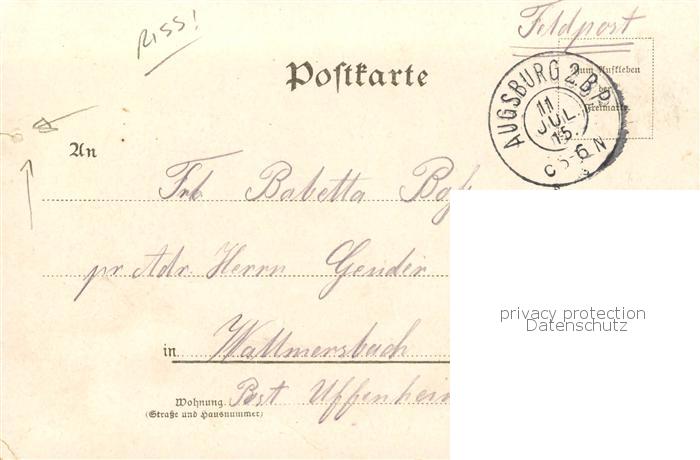 RISS!
Feldpost
Postkarte
Zum Aufkleben
der
Freimarke.
AUGSBURG 2. B.P.
11
JUL.
15.
5-6 N
An
Babetta
pr Adr. Herrn Gender
in Wallmersbach
Wohnung Post Uffenheim
(Straße und Hausnummer)
privacy protection
Datenschutz